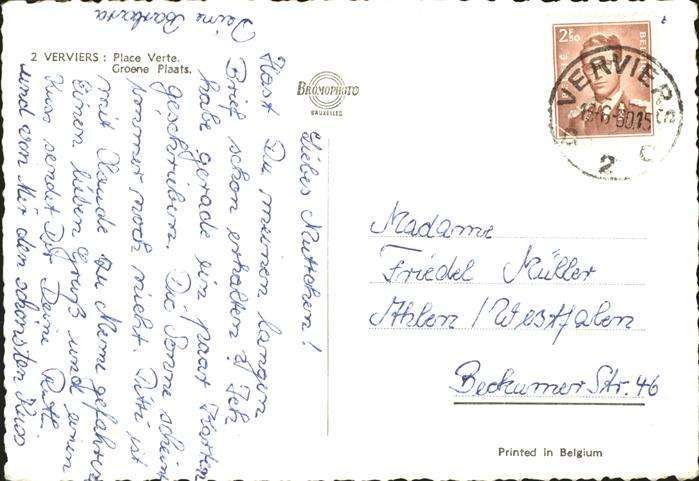 2 VERVIERS : Place Verte.
Groene Plaats.
BROMOPHOTO
BRUXELLES
Liebes Muttchen!
Hast Du meinen langen
Brief schon erhalten? Ich
habe gerade ein paar Karten
geschrieben. Die Sonne scheint
immer noch nicht. Titti ist
mit Claude zu Meme gefahren
Einen lieben Gruß und einen
Kuss sendet Dir Deine Ruth.
und von Mir den schönsten Kuss
Deine Barbara
2F50
VERVIERS
2 C
Madame
Friedel Müller
Ahlen / Westfalen
Beckumer Str. 46
Printed in Belgium